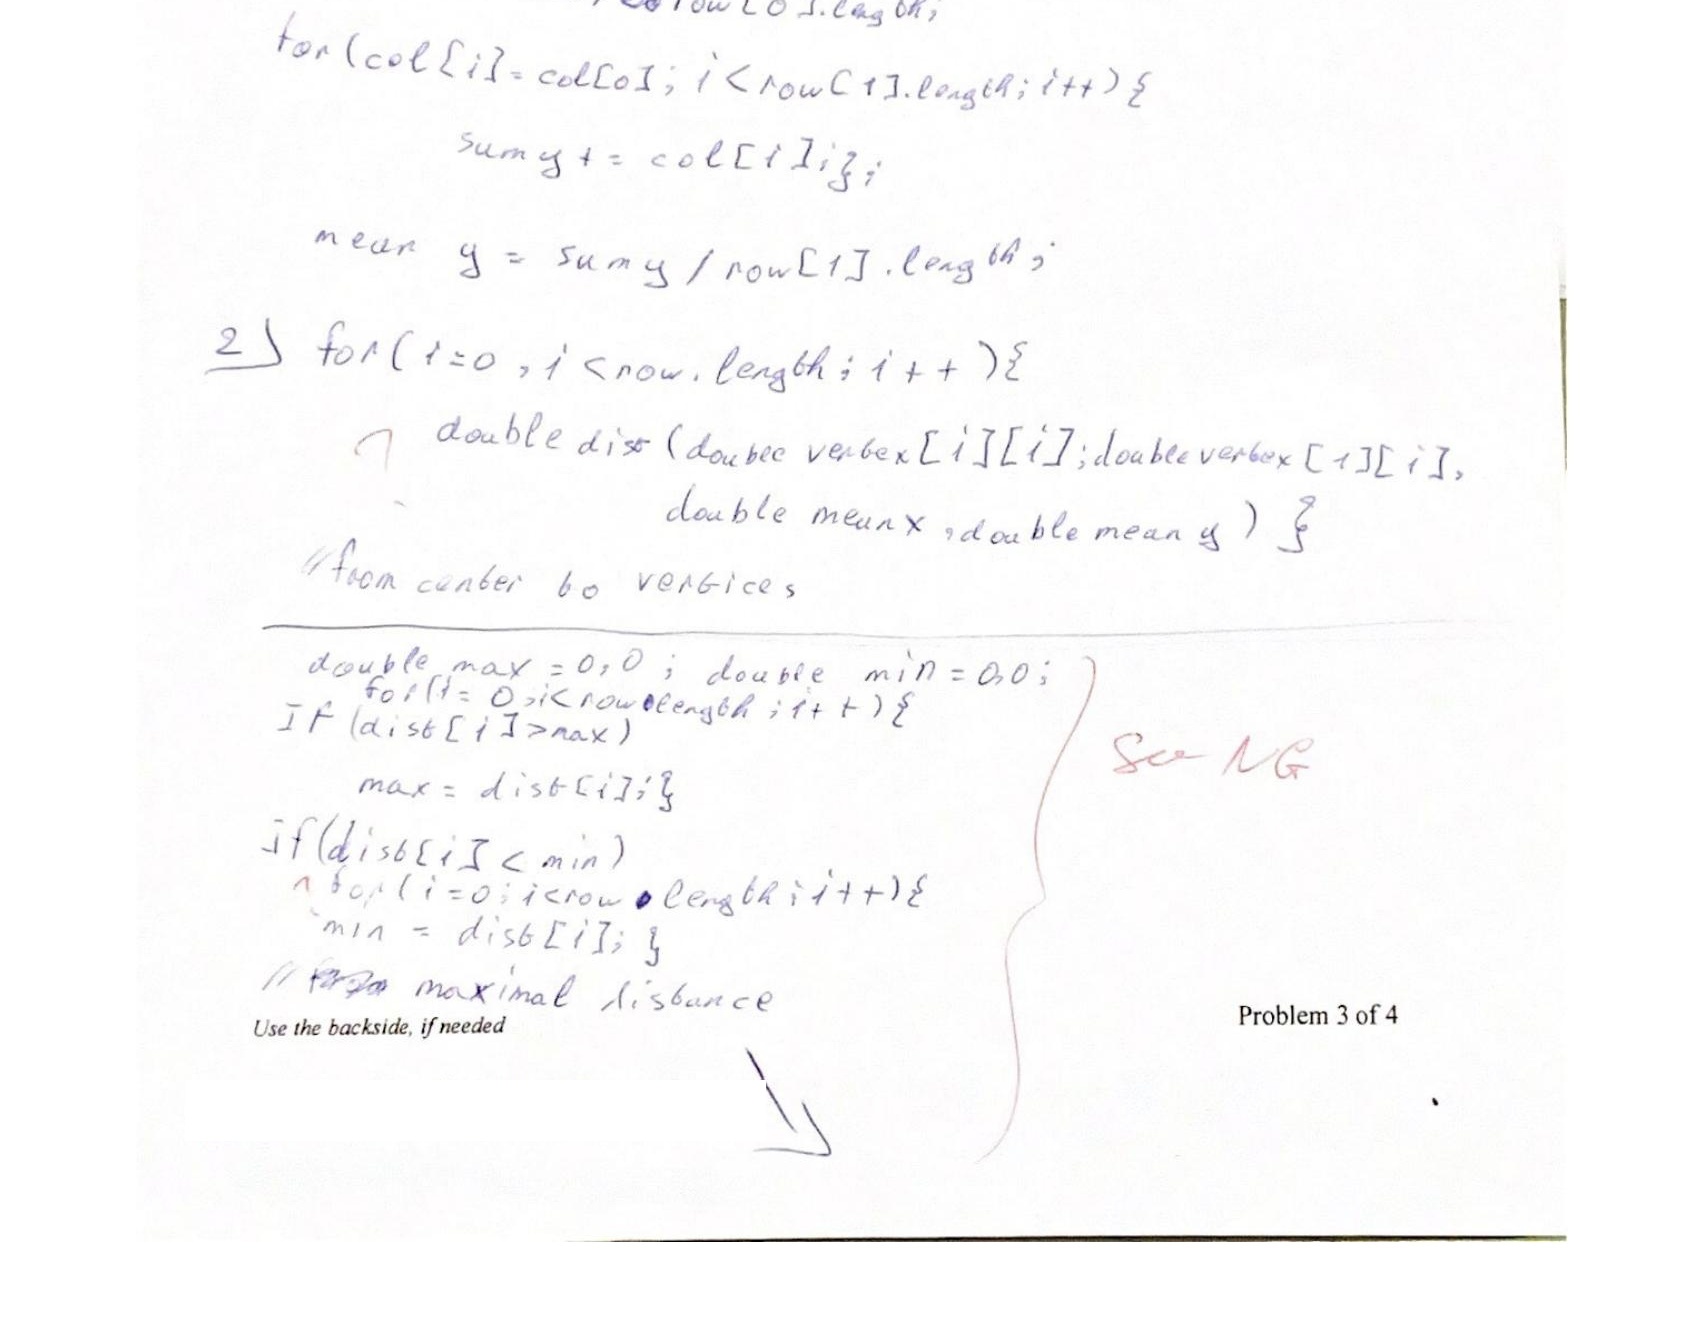 row[0].length;
for(col[i]=col[0]; i<row[1].length; i++){
sumy += col[i];};
mean y = sumy / row[1].length;
2) for(i=0, i<row.length; i++){
double dist (double vertex[i][i]; double vertex[1][i],
double meanx, double meany) }
//from center to vertices
double max = 0,0; double min = 0,0;
for(i= 0;i<row.length; i++){
If (dist[i]>max)
max = dist[i];}
if(dist[i] < min)
for(i=0; i<row.length; i++){
min = dist[i]; }
// maximal distance
See NG
Use the backside, if needed
Problem 3 of 4